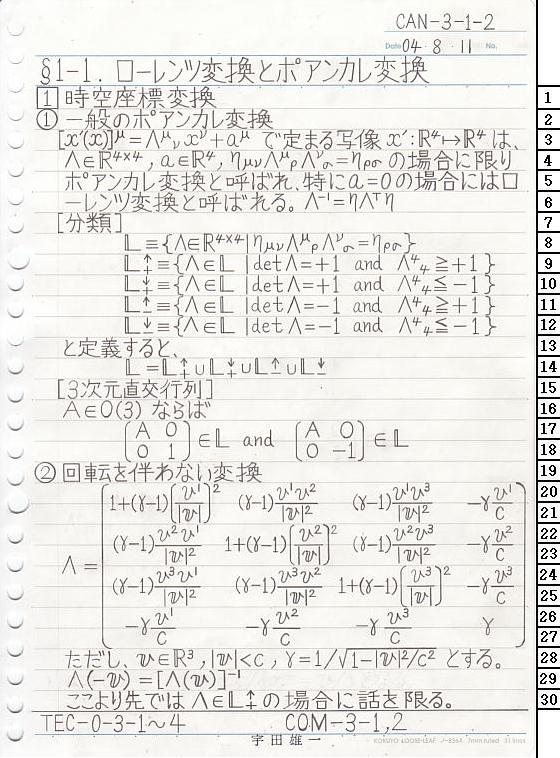 CAN-3-1-2
Date 04・8・11 No.
§1-1. ローレンツ変換とポアンカレ変換
1 時空座標変換
① 一般のポアンカレ変換
[x′(x)]^μ=Λ^μ_ν x^ν+a^μ で定まる写像 x′:ℝ⁴↦ℝ⁴ は、
Λ∈ℝ^{4×4}, a∈ℝ⁴, η_{μν}Λ^μ_ρΛ^ν_σ=η_{ρσ} の場合に限り
ポアンカレ変換と呼ばれ、特にa=0の場合にはロ
ーレンツ変換と呼ばれる。Λ⁻¹=ηΛ^Tη
[分類]
𝕃≡{Λ∈ℝ^{4×4}|η_{μν}Λ^μ_ρΛ^ν_σ=η_{ρσ}}
𝕃↑₊≡{Λ∈𝕃 |detΛ=+1 and Λ⁴₄≧+1}
𝕃↓₊≡{Λ∈𝕃 |detΛ=+1 and Λ⁴₄≦-1}
𝕃↑₋≡{Λ∈𝕃 |detΛ=-1 and Λ⁴₄≧+1}
𝕃↓₋≡{Λ∈𝕃 |detΛ=-1 and Λ⁴₄≦-1}
と定義すると、
𝕃=𝕃↑₊∪𝕃↓₊∪𝕃↑₋∪𝕃↓₋
[3次元直交行列]
A∈O(3) ならば
(A 0; 0 1)∈𝕃 and (A 0; 0 -1)∈𝕃
② 回転を伴わない変換
Λ=
1+(γ-1)(v¹/|v|)² (γ-1)v¹v²/|v|² (γ-1)v¹v³/|v|² -γv¹/c
(γ-1)v²v¹/|v|² 1+(γ-1)(v²/|v|)² (γ-1)v²v³/|v|² -γv²/c
(γ-1)v³v¹/|v|² (γ-1)v³v²/|v|² 1+(γ-1)(v³/|v|)² -γv³/c
-γv¹/c -γv²/c -γv³/c γ
ただし、v∈ℝ³, |v|<c, γ=1/√(1-|v|²/c²) とする。
Λ(-v)=[Λ(v)]⁻¹
ここより先では Λ∈𝕃↑₊ の場合に話を限る。
TEC-0-3-1〜4 COM-3-1,2
宇田雄一
KOKUYO LOOSE-LEAF ノ-836A 7mm ruled 31 lines
1
2
3
4
5
6
7
8
9
10
11
12
13
14
15
16
17
18
19
20
21
22
23
24
25
26
27
28
29
30